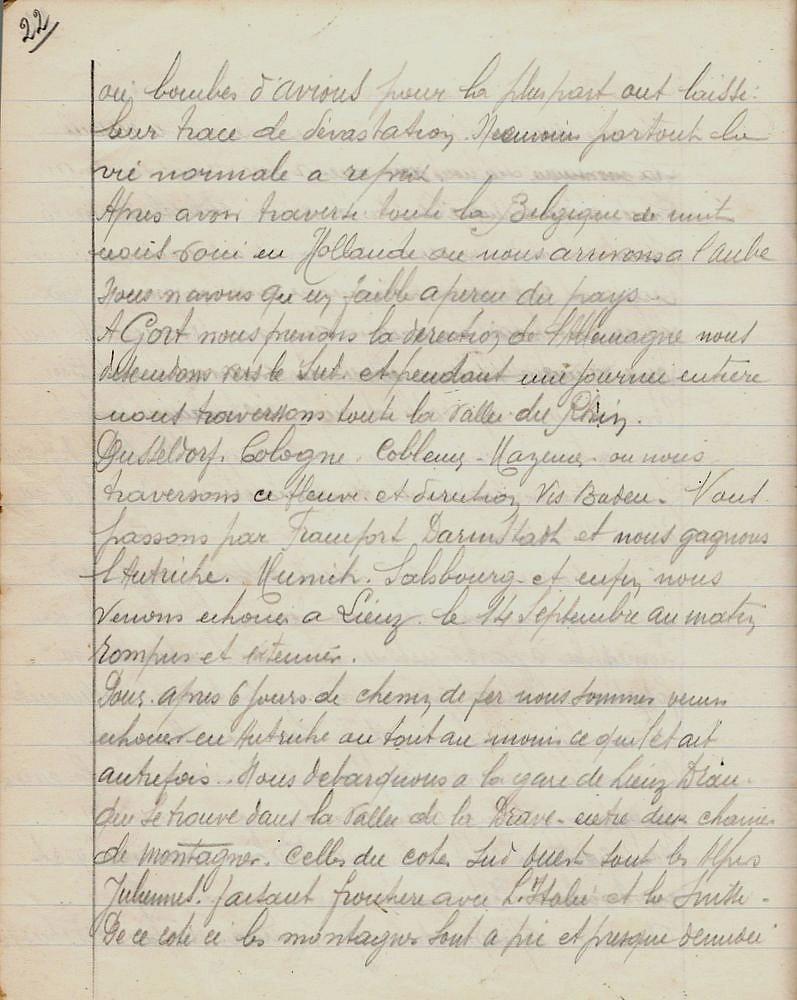 22
ou bombes d'avions pour la pluspart ont laissé
leur trace de dévastation. Neanmoins partout la
vie normale a repris
Apres avoir traversé toute la Belgique de nuit
nous voici en Hollande ou nous arrivons a l'aube
Nous n'avons qu'un faible apercu du pays.
A Gort nous prenons la direction de l'Allemagne nous
descendons vers le Sud. et pendant une journée entière
nous traversons toute la vallée du Rhin.
Dusseldorf. Cologne. Coblenz - Mayence. ou nous
traversons ce fleuve. et direction Vis Baden. Nous
passons par Francfort Darmstadt et nous gagnons
l'Autriche. Munich. Salsbourg - et enfin nous
venons echouer a Lienz. le 14 Septembre au matin
rompus et extenués.
Donc. après 6 jours de chemin de fer nous sommes venus
echouer en Autriche ou tout au moins ce qui l'etait
autrefois. Nous debarquons a la gare de Lienz Drau.
qui se trouve dans la vallée de la Drave - entre deux chaines
de montagnes. Celles du cotés Sud Ouest sont les Alpes
Juliennes. faisant frontiere avec L'Italie et la Suisse.
De ce coté ci les montagnes sont a pic et presque denudée